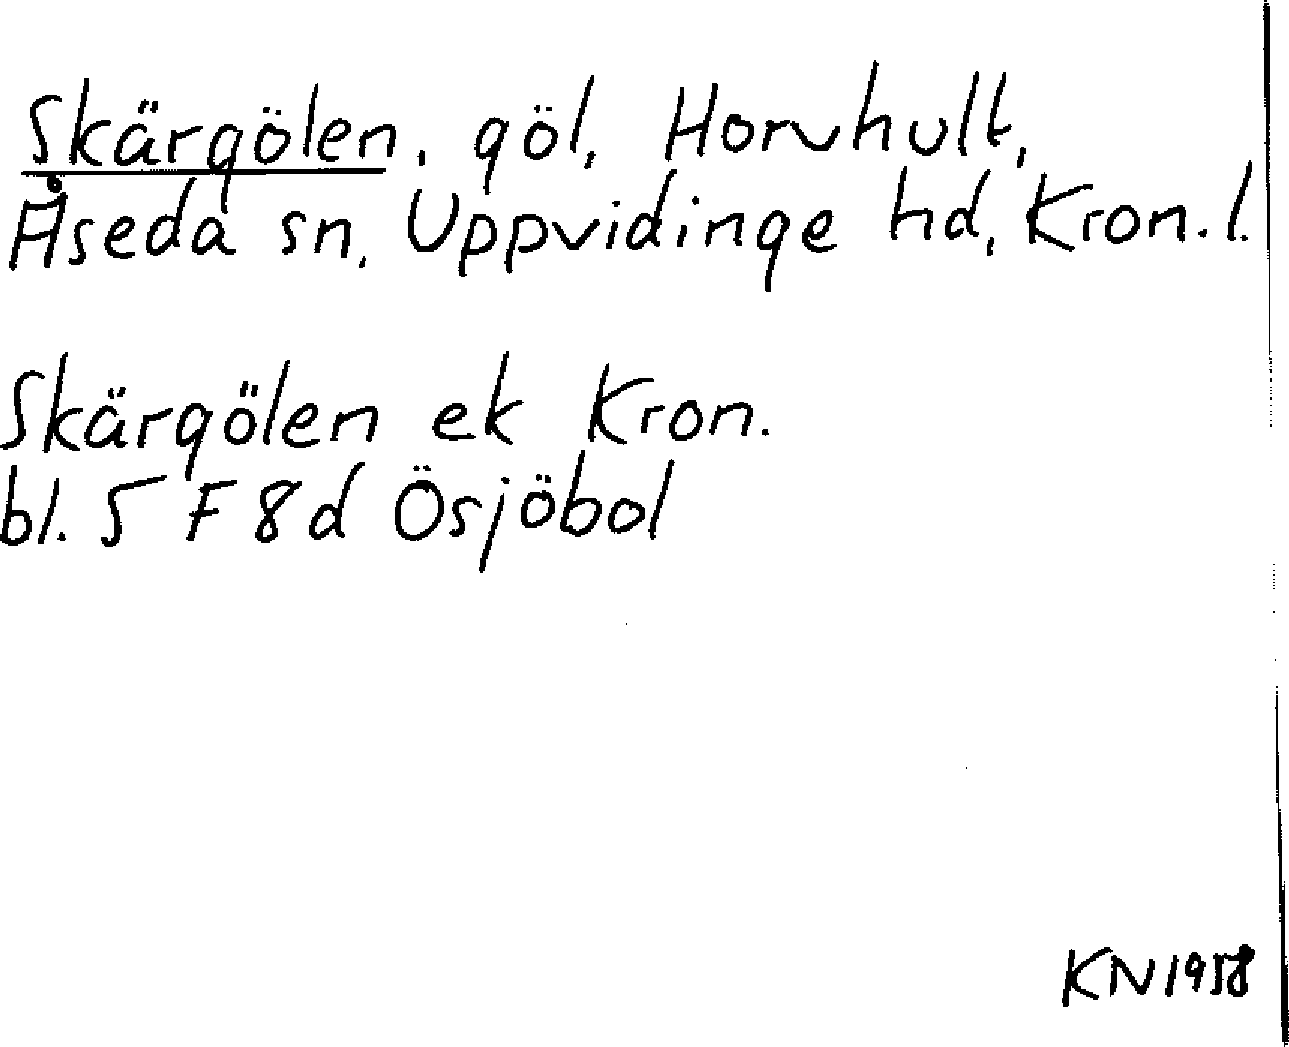 Skärgölen, göl, Horvhult,
Åseda sn, Uppvidinge hd, Kron. l.
Skärgölen ek Kron.
bl. 5 F 8d Ösjöbol
KN 1958